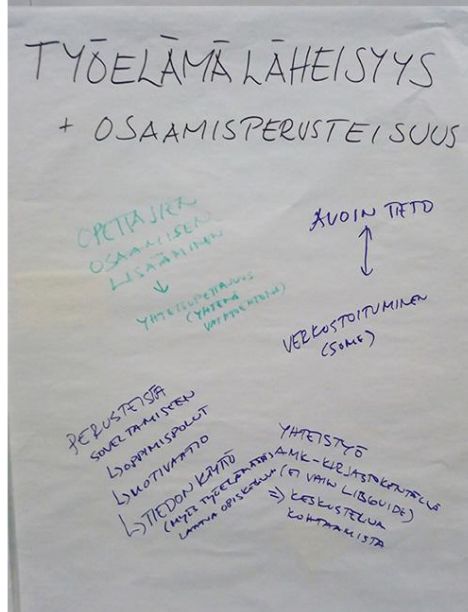 TYÖELÄMÄLÄHEISYYS
+ OSAAMISPERUSTEISUUS
OPETTAJIEN
OSAAMISEN
LISÄÄMINEN
↓
YHTEISOPETTAJUUS
(YHTENÄ
VAIHTOEHTONA)
AVOIN TIETO
↕
VERKOSTOITUMINEN
(SOME)
PERUSTEISTA
SOVELTAMISEEN
↳ OPPIMISPOLUT
↳ MOTIVAATIO
↳ TIEDON KÄYTTÖ
(MYÖS TYÖELÄMÄSSÄ)
OPISKELUA
YHTEISTYÖ
AMK-KIRJASTOKENTÄLLÄ
(EI VAIN LIBGUIDE)
⇒ KESKUSTELUA
KOHTAAMISTA